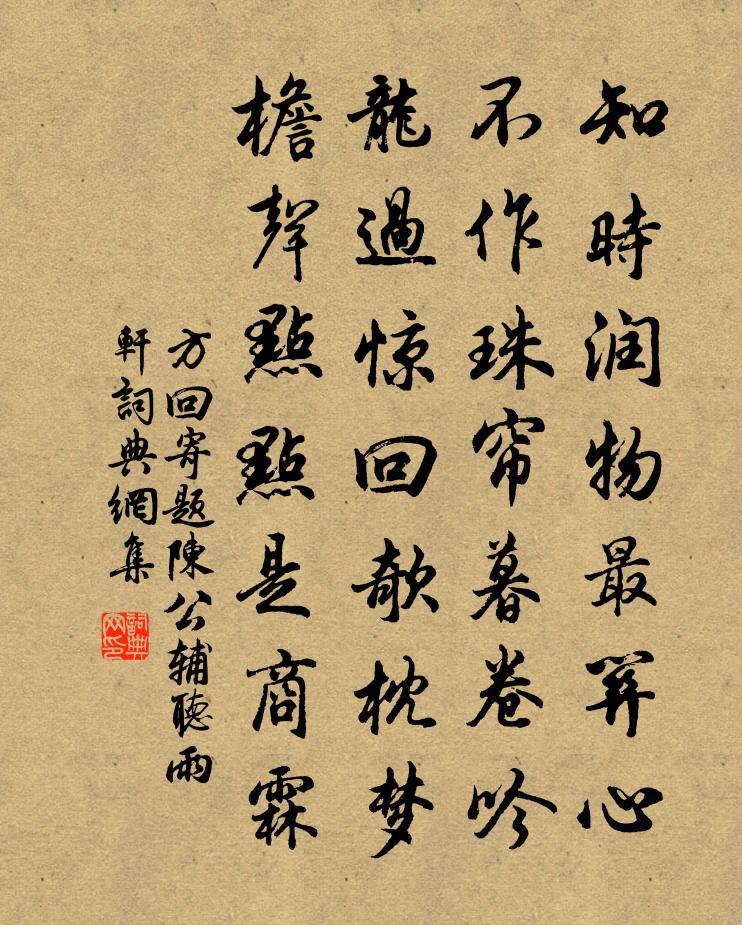 知時润物最关心
不作珠帘暮卷吟
龍過惊回欹枕梦
檐聲點點是商霖
方回寄题陳公辅聽雨
軒詞典網集
詞典网印